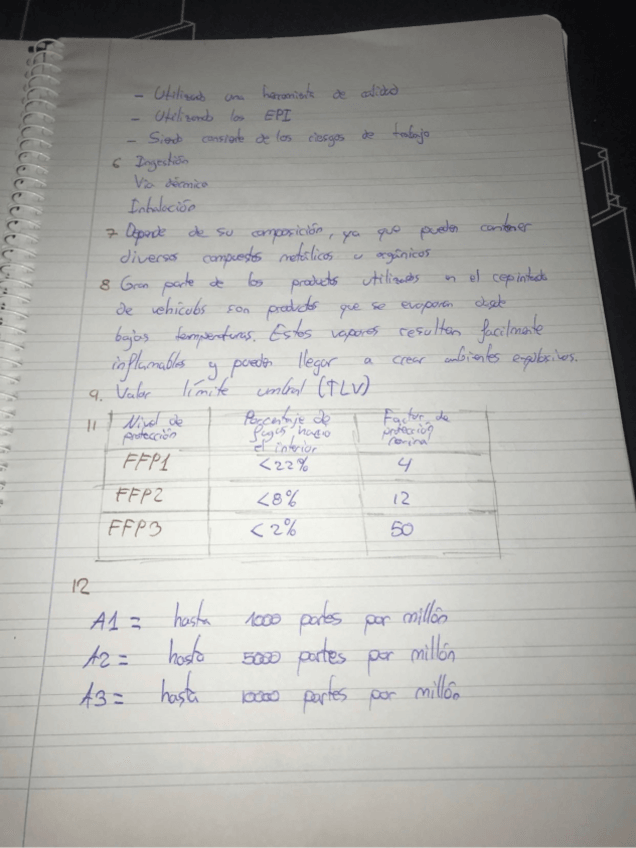 - Utilizando una herramienta de calidad
- Utilizando los EPI
- Siendo consiente de los riesgos de trabajo
6 Ingestión
Vía dérmica
Inhalación
7 Depende de su composición, ya que pueden contener
diversos compuestos metálicos u orgánicos
8 Gran parte de los productos utilizados en el repintado
de vehículos son productos que se evaporan desde
bajas temperaturas. Estos vapores resultan facilmente
inflamables y pueden llegar a crear ambientes explosivos.
9. Valor límite umbral (TLV)
11 Nivel de protección Porcentaje de fugas hacia el interior Factor de protección nominal
FFP1 <22% 4
FFP2 <8% 12
FFP3 <2% 50
12
A1 = hasta 1000 partes por millón
A2 = hasta 5000 partes por millón
A3 = hasta 10000 partes por millón